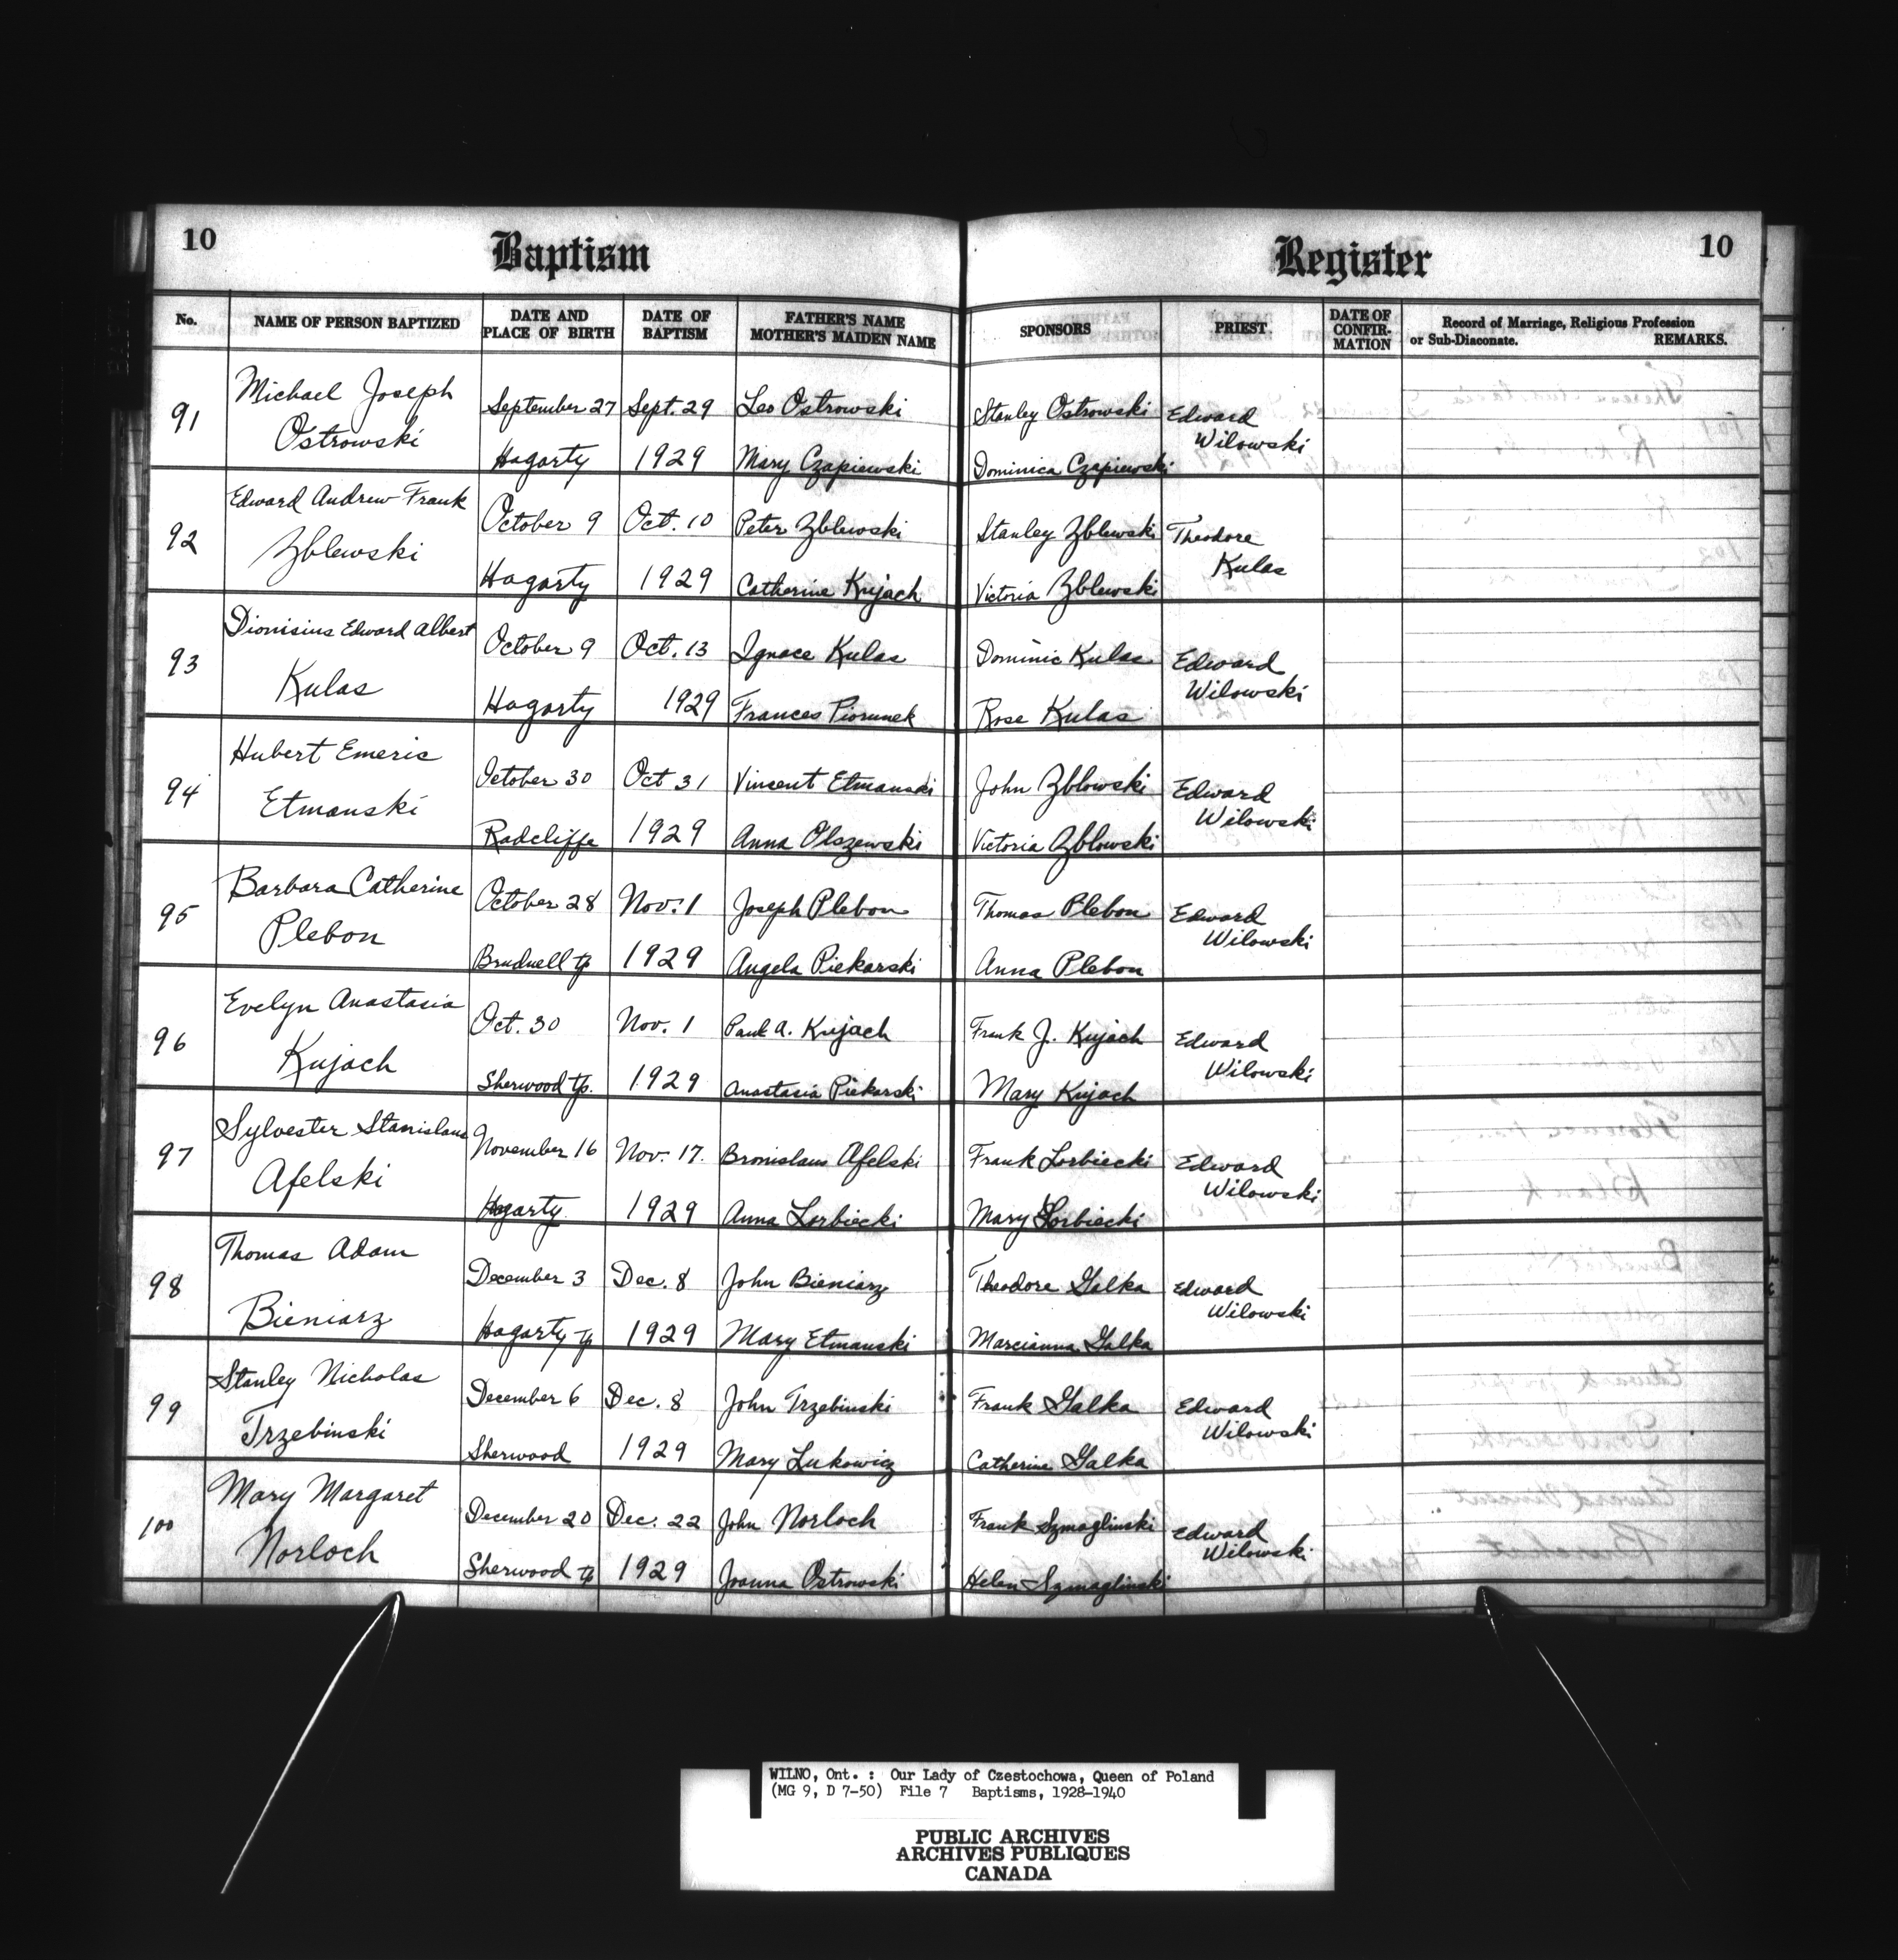 10
Baptism
Register
10
No.
NAME OF PERSON BAPTIZED
DATE AND
PLACE OF BIRTH
DATE OF
BAPTISM
FATHER'S NAME
MOTHER'S MAIDEN NAME
SPONSORS
PRIEST.
DATE OF
CONFIR-
MATION
Record of Marriage, Religious Profession
or Sub-Diaconate. REMARKS.
91
Michael Joseph
Ostrowski
September 27
Hagarty
Sept. 29
1929
Leo Ostrowski
Mary Czapiewski
Stanley Ostrowski
Dominica Czapiewski
Edward
Wilowski
92
Edward Andrew Frank
Zblewski
October 9
Hagarty
Oct. 10
1929
Peter Zblewski
Catherine Kujach
Stanley Zblewski
Victoria Zblewski
Theodore
Kulas
93
Dionisius Edward Albert
Kulas
October 9
Hagarty
Oct. 13
1929
Ignace Kulas
Frances Piorunek
Dominic Kulas
Rose Kulas
Edward
Wilowski
94
Hubert Emeric
Etmanski
October 30
Radcliffe
Oct 31
1929
Vincent Etmanski
Anna Olszewski
John Zblowski
Victoria Zblowski
Edward
Wilowski
95
Barbara Catherine
Plebon
October 28
Brudnell tp
Nov. 1
1929
Joseph Plebon
Angela Piekarski
Thomas Plebon
Anna Plebon
Edward
Wilowski
96
Evelyn Anastasia
Kujach
Oct. 30
Sherwood tp.
Nov. 1
1929
Paul A. Kujach
Anastasia Piekarski
Frank J. Kujach
Mary Kujach
Edward
Wilowski
97
Sylvester Stanislaus
Afelski
November 16
Hagarty
Nov. 17.
1929
Bronislaus Afelski
Anna Lorbiecki
Frank Lorbiecki
Mary Lorbiecki
Edward
Wilowski
98
Thomas Adam
Bieniarz
December 3
Hagarty tp
Dec. 8
1929
John Bieniarz
Mary Etmanski
Theodore Galka
Marcianna Galka
Edward
Wilowski
99
Stanley Nicholas
Trzebinski
December 6
Sherwood
Dec. 8
1929
John Trzebinski
Mary Lukowicz
Frank Galka
Catherine Galka
Edward
Wilowski
100
Mary Margaret
Norloch
December 20
Sherwood tp
Dec. 22
1929
John Norloch
Joanna Ostrowski
Frank Szmaglinski
Helen Szmaglinski
Edward
Wilowski
WILNO, Ont. : Our Lady of Czestochowa, Queen of Poland
(MG 9, D 7-50) File 7 Baptisms, 1928-1940
PUBLIC ARCHIVES
ARCHIVES PUBLIQUES
CANADA